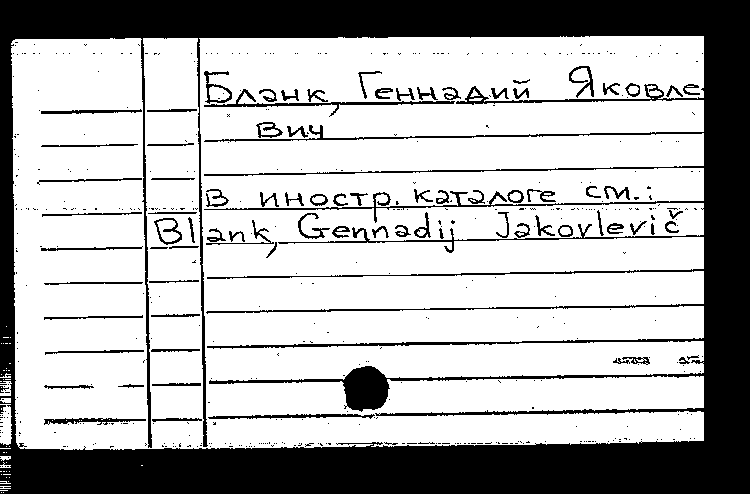 Бланк, Геннадий Яковле
вич
в иностр. каталоге см.:
Blank, Gennadij Jakovlevič